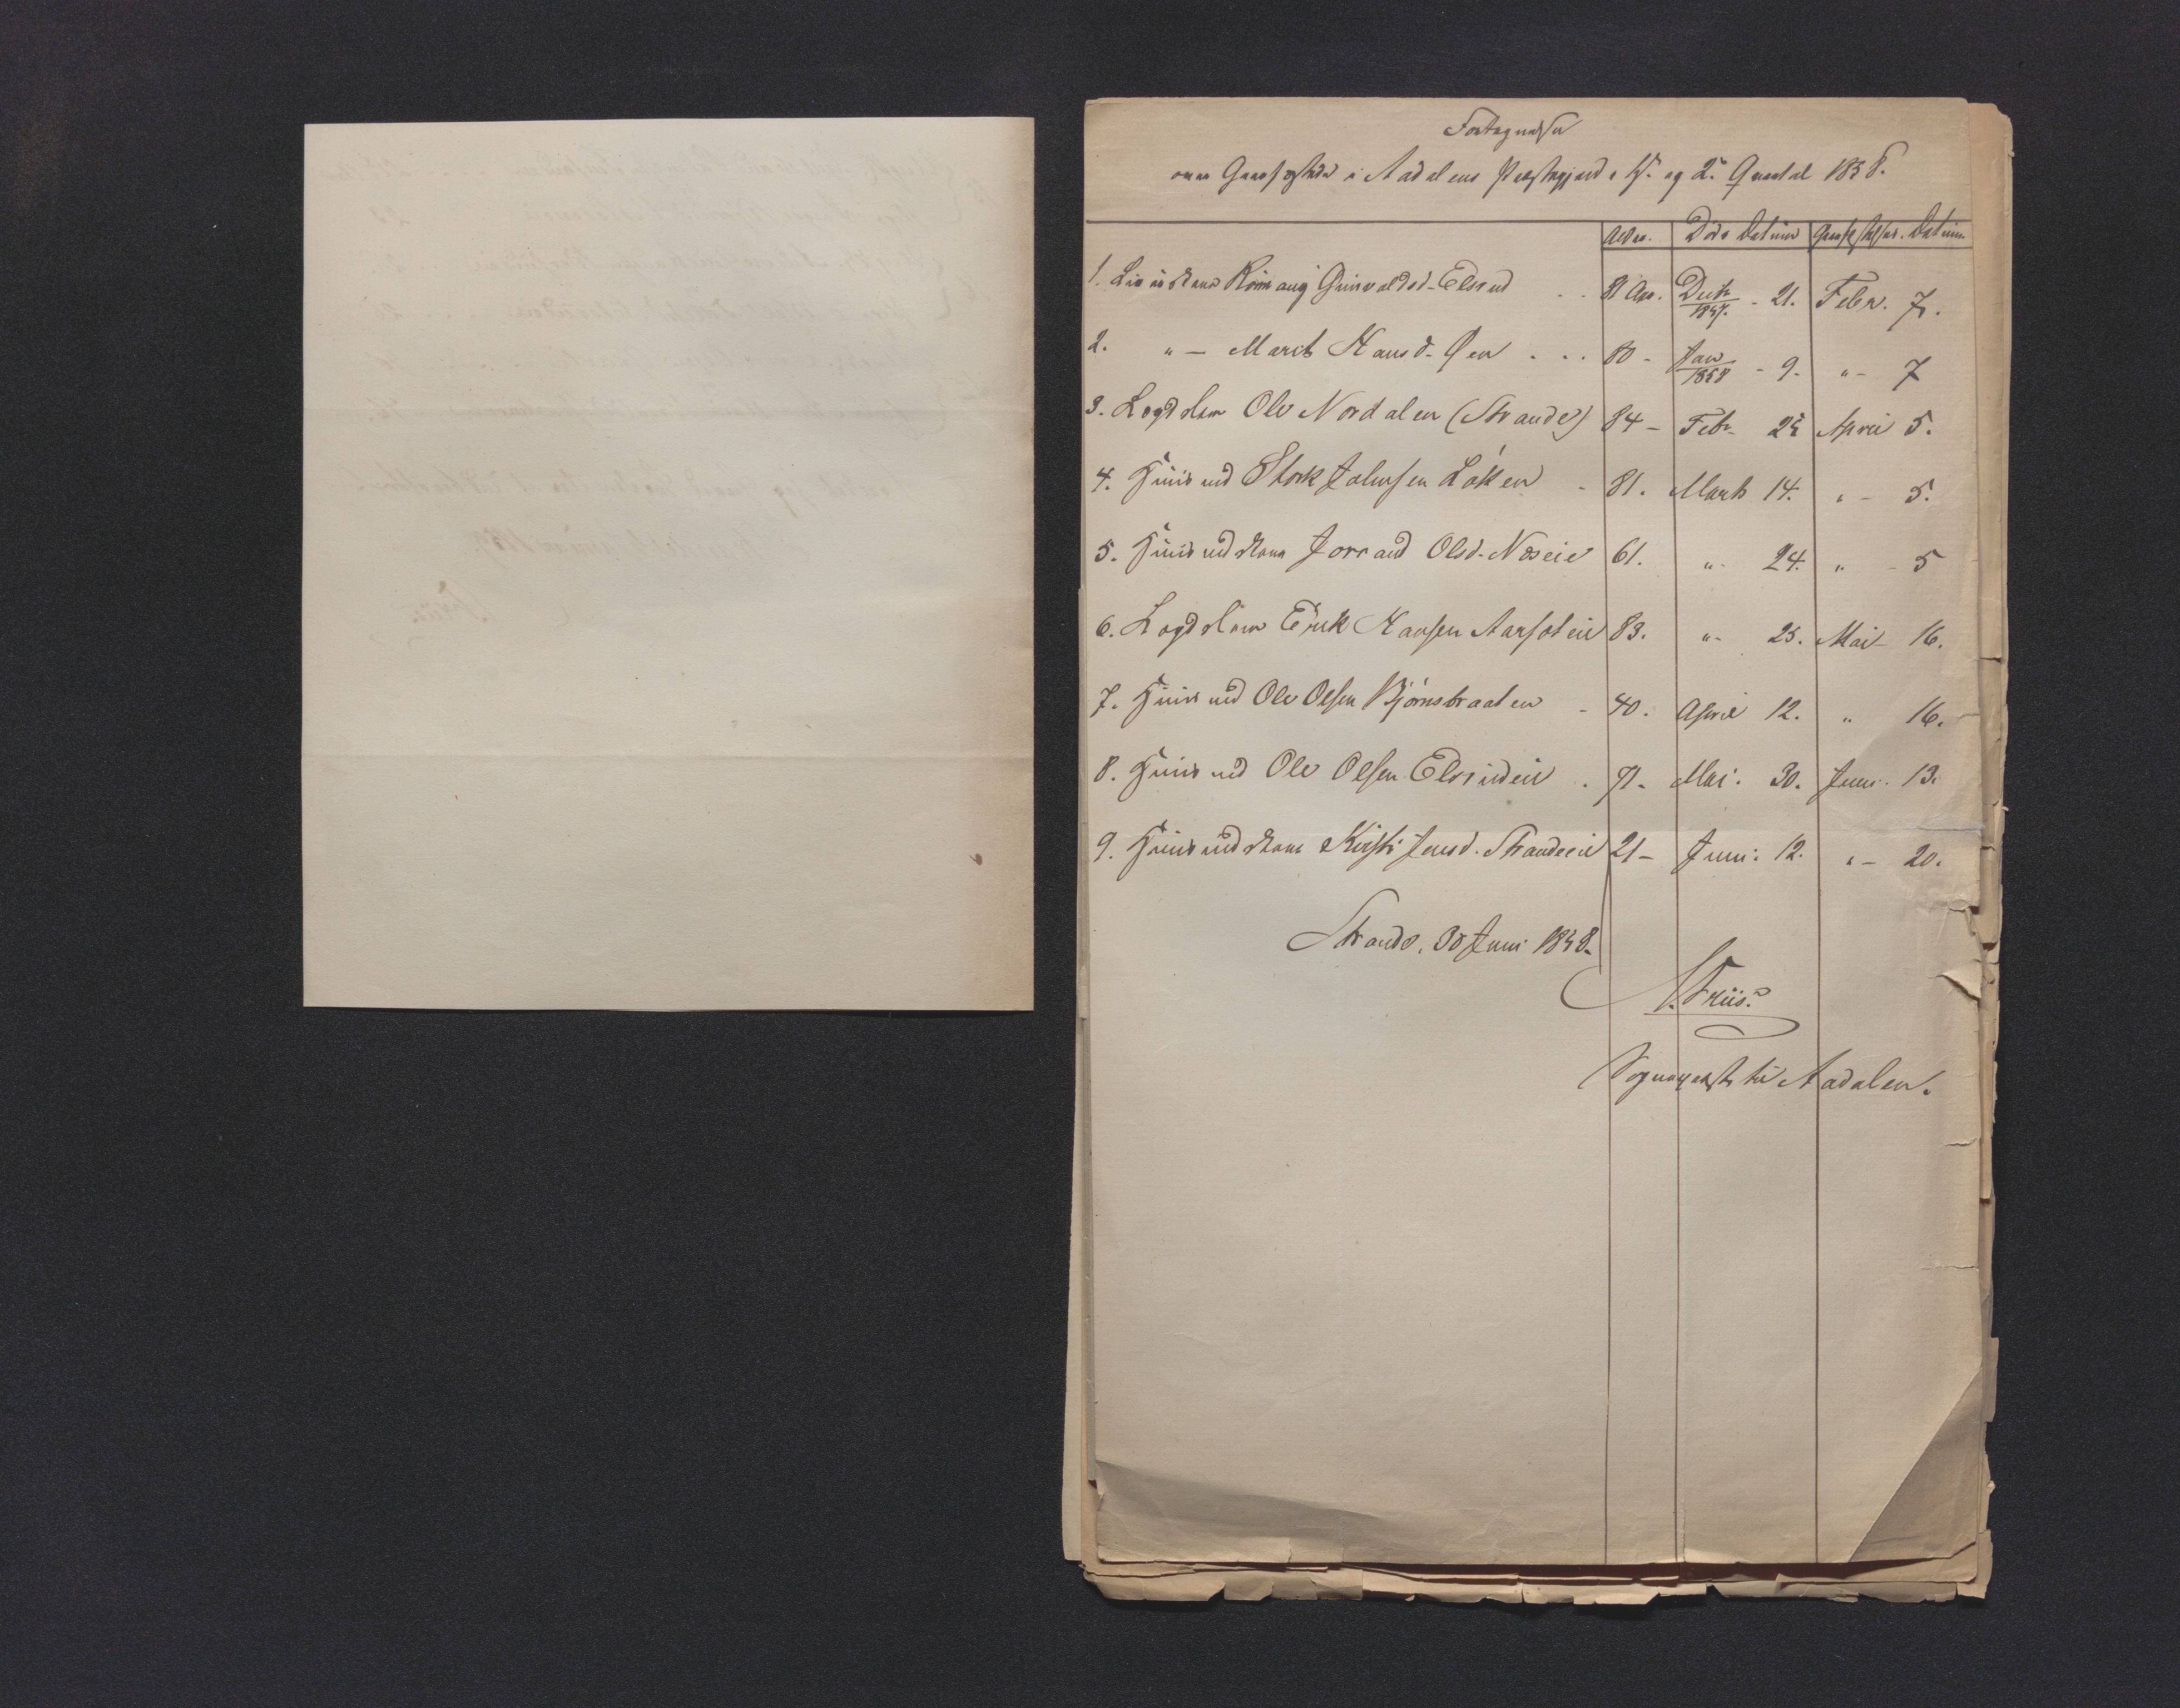 Fortegnelse
over Gravfæstede i Aadalens Præstegjeld i 1ste og 2det Qvartal 1858.
Alder. Døds Datum Gravfæstelses. Datum
1. Livørekone Rønnaug Gunvaldsd. Elsrud . . 81 Aar. Decbr 1857. - 21. Febr. 7.
2. " - Marit Hansd. Øen . . . 80 - Jan 1858 - 9. " - 7
3. Lægdslem Ole Nordalen (Strande) 84 - Febr. April 5.
4. Huusmd Stork Løken - 81. Marts 14. " - 5.
5. Huusmdskone Jorrand Olsd. Næseie 61. " - 24. " - 5
6. Lægdslem Erik Hansen 83. " - 25. Mai - 16.
7. Huusmd Ole Olsen Bjørnsbraaten - 40. April 12. " 16.
8. Huusmd Ole Olsen Elsrudeie . 71 - Mai. 30. Juni. 13.
9. Huusmdskone Kirsti Jensd. Strandeeie 21 - Juni. 12. " - 20.
Strande, 30 Juni 1858.
Friis.
Sognepræst til Aadalen.